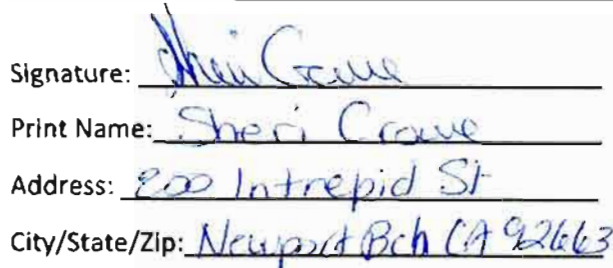 Signature: Sheri Crowe
Print Name: Sheri Crowe
Address: 200 Intrepid St
City/State/Zip: Newport Bch CA 92663